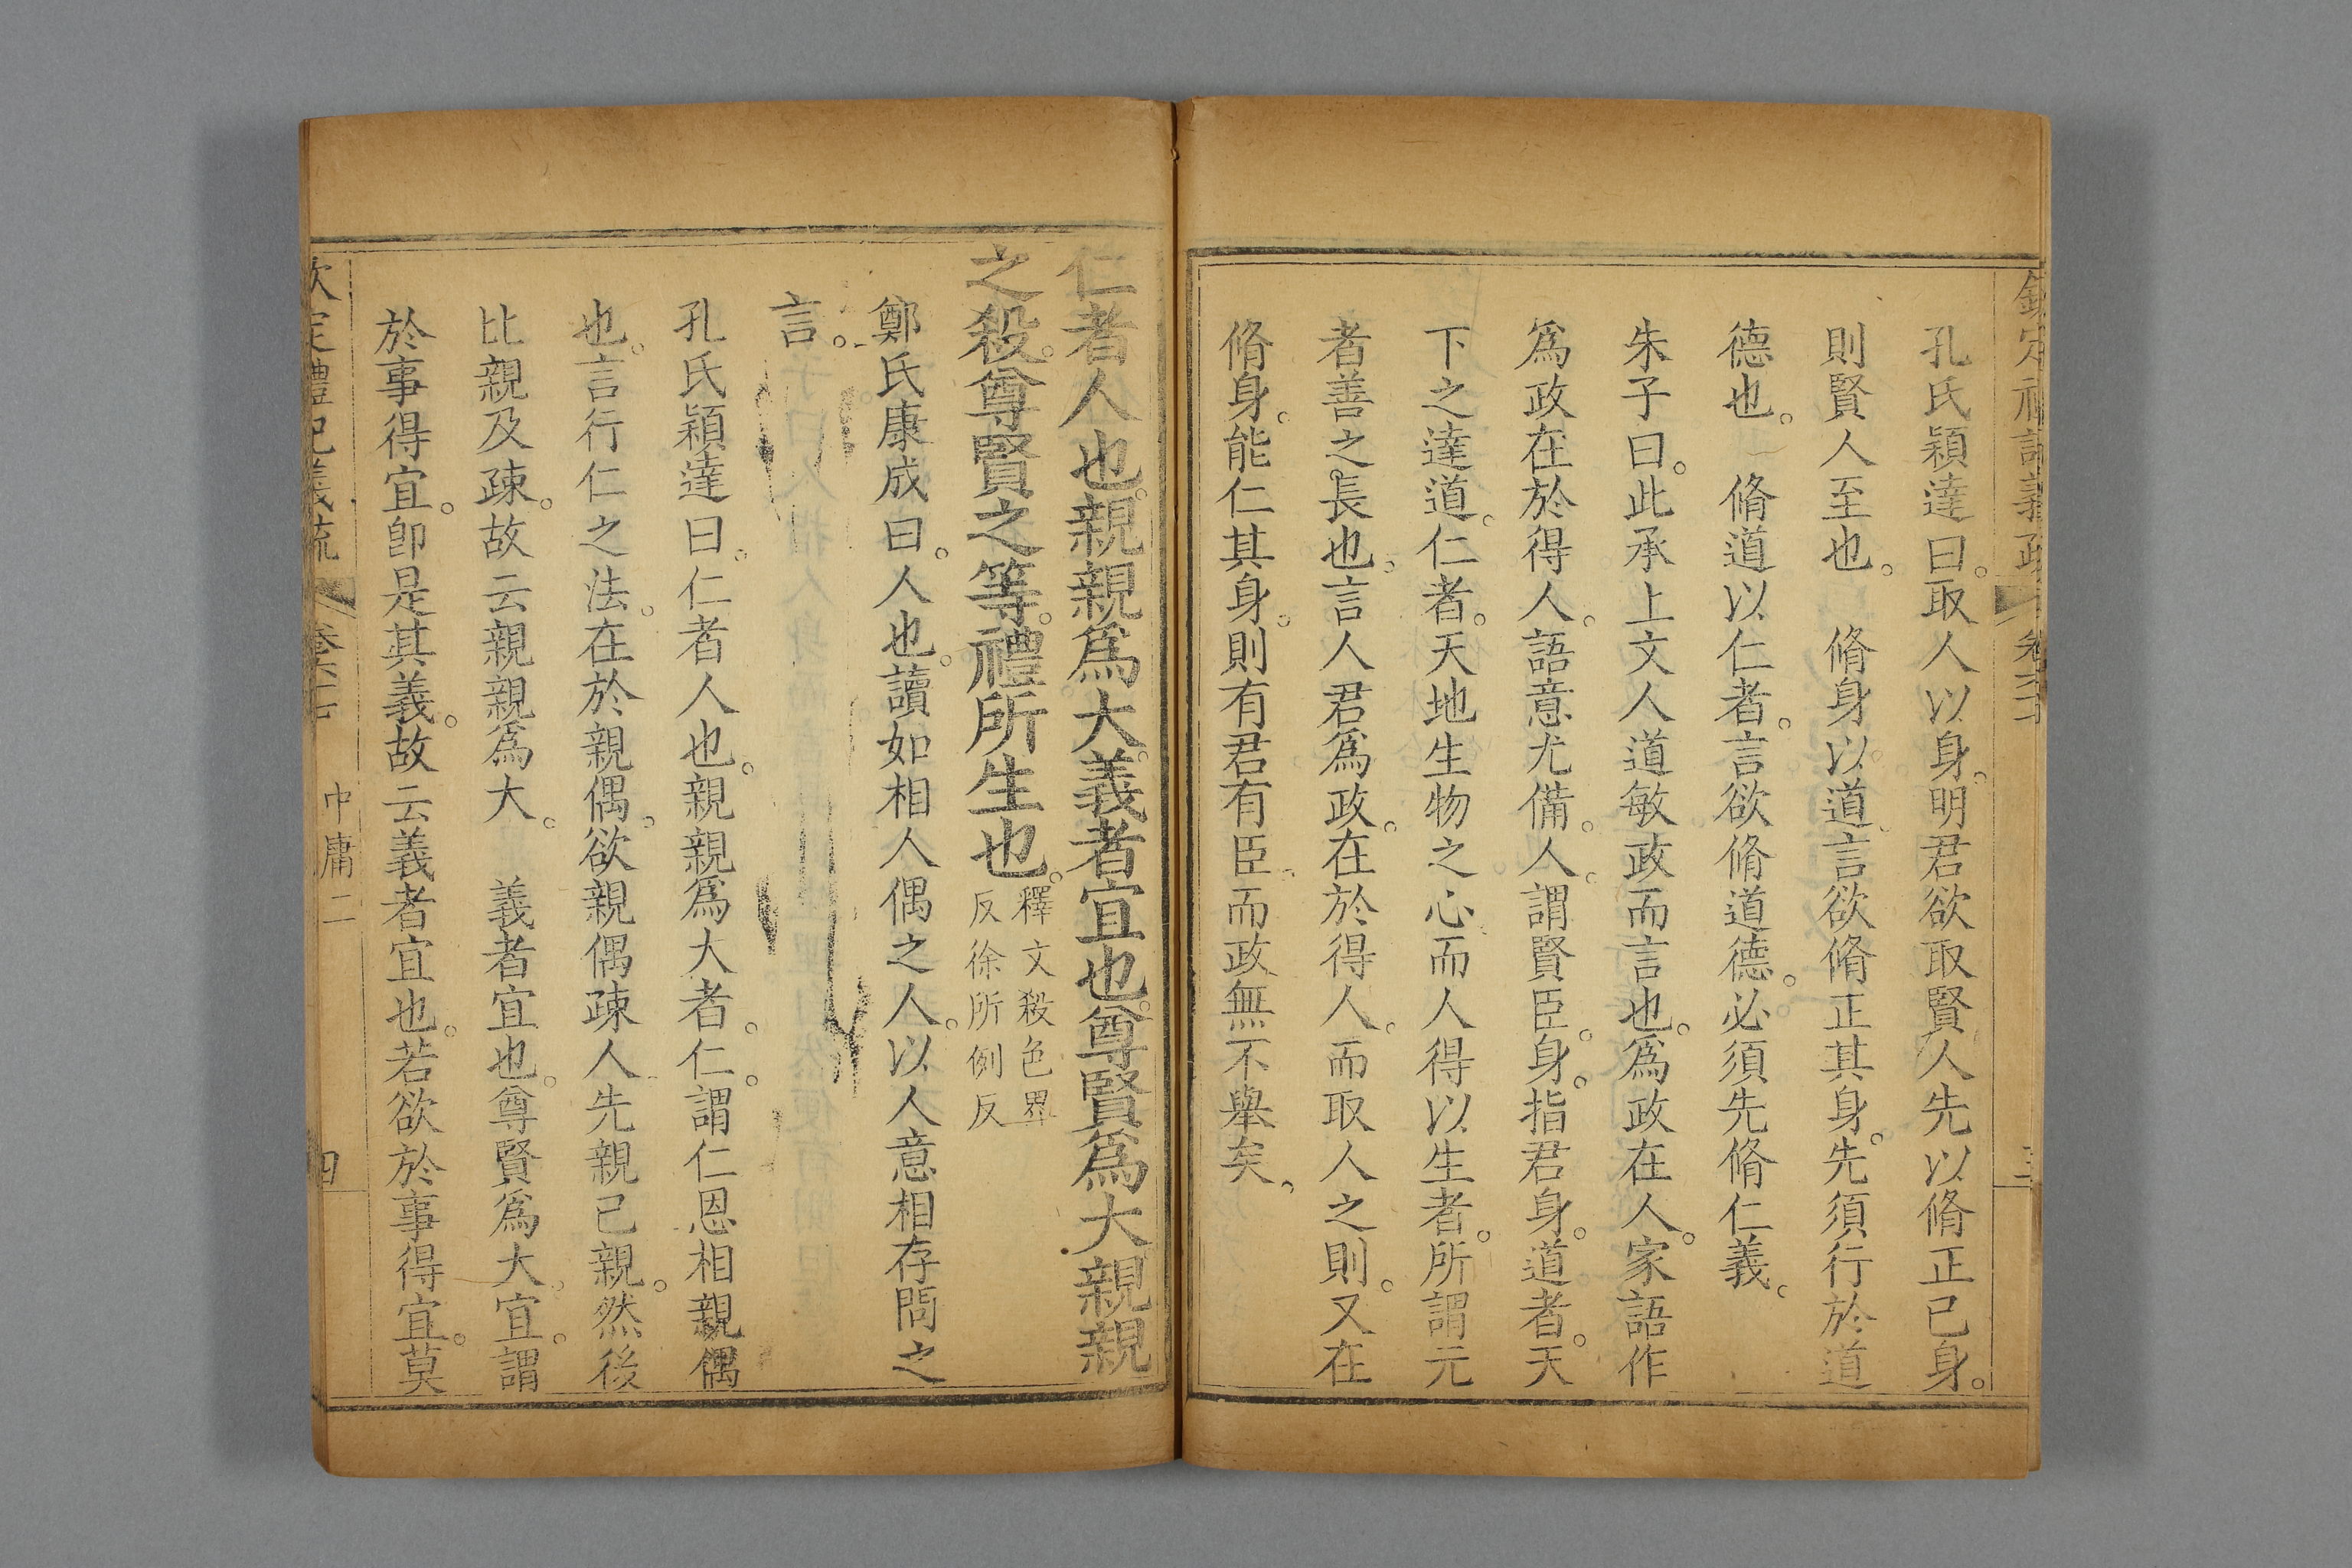 孔氏穎達曰。取人以身。明君欲取賢人先以脩正己身。
則賢人至也。　脩身以道。言欲脩正其身。先須行於道
德也。　脩道以仁者。言欲脩道德。必須先脩仁義。
朱子曰。此承上文人道敏政而言也。爲政在人。家語作
爲政在於得人。語意尤備。人。謂賢臣。身。指君身。道者。天
下之達道。仁者。天地生物之心而人得以生者。所謂元
者善之長也。言人君爲政。在於得人。而取人之則。又在
脩身。能仁其身。則有君有臣。而政無不舉矣。
仁者人也。親親爲大。義者宜也。尊賢爲大。親親
之殺。尊賢之等。禮所生也。釋文殺色界
反徐所例反
鄭氏康成曰。人也。讀如相人偶之人。以人意相存問之
言。
孔氏穎達曰。仁者人也。親親爲大者。仁。謂仁恩相親偶
也。言行仁之法。在於親偶。欲親偶疎人先親己親。然後
比親及疎。故云親親爲大。　義者宜也。尊賢爲大。宜。謂
於事得宜。卽是其義。故云義者宜也。若欲於事得宜。莫
中庸二
四